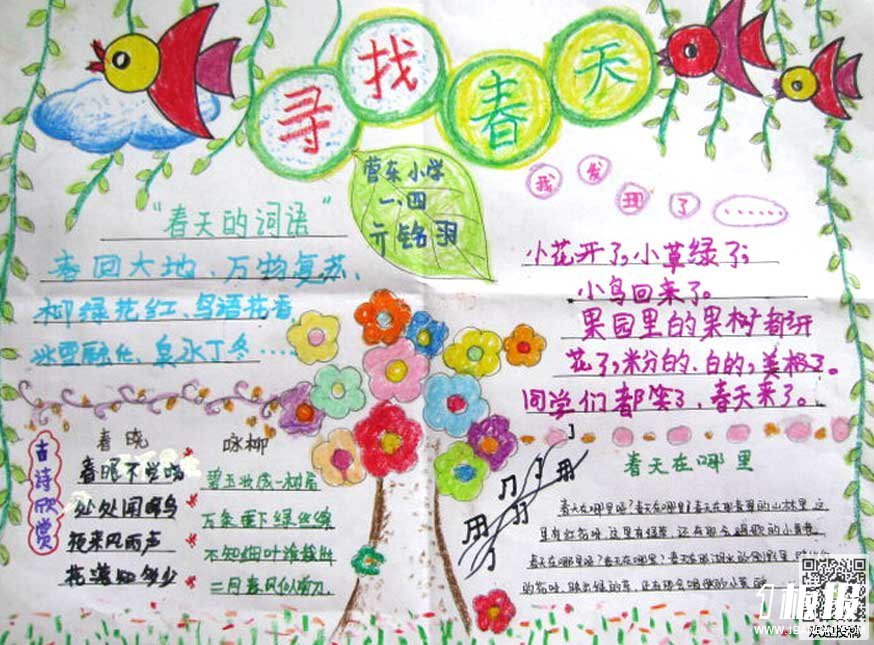 寻找春天
营东小学
一.四
亓铭羽
"春天的词语"
春回大地、万物复苏、
柳绿花红、鸟语花香
冰雪融化、
我发现了……
小花开了,小草绿了;
小鸟回来了。
果园里的果树都开
花了,粉的、白的,美极了。
同学们都笑了,春天来了。
古诗欣赏
春晓
春眠不觉晓
处处闻啼鸟
夜来风雨声
花落知多少
咏柳
碧玉妆成一树高
万条垂下绿丝绦
不知细叶谁裁出
二月春风似剪刀.
春天在哪里
春天在哪里呀?春天在哪里?春天在那青翠的山林里,这
里有红花呀,这里有绿草,还有那会唱歌的小黄莺
春天在哪里呀?春天在哪里?春天在那湖水的倒影里
的花呀,映出绿的草,还有那会唱歌的小
板报